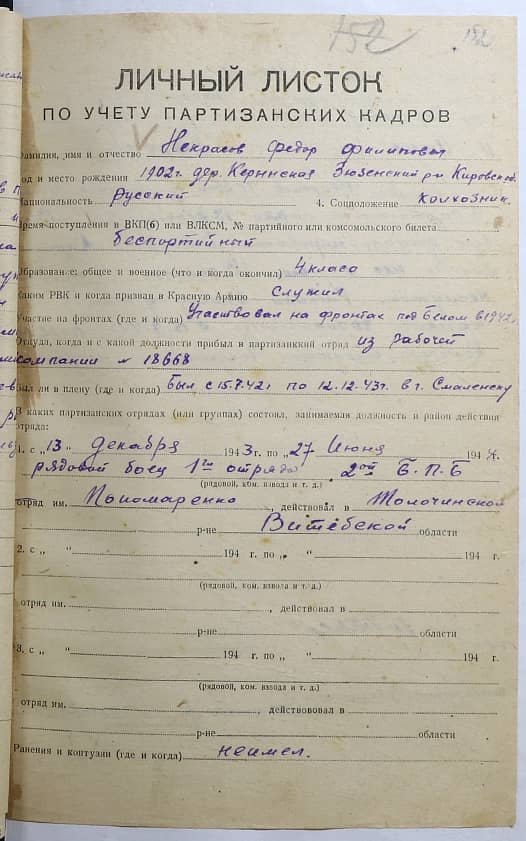 152
152
ЛИЧНЫЙ ЛИСТОК
ПО УЧЕТУ ПАРТИЗАНСКИХ КАДРОВ
Фамилия, имя и отчество Некрасов Федор Филиппович
год и место рождения 1902 г. дер. Кернинская Зюзенский р-н Кировской
Национальность Русский 4. Соцположение Колхозник.
Время поступления в ВКП(б) или ВЛКСМ, № партийного или комсомольского билета
беспортийный
Образование: общее и военное (что и когда окончил) 4 класа
Каким РВК и когда призван в Красную Армию Служил
Участие на фронтах (где и когда) Участвовал на фронтах под Белом в 1942 г.
Откуда, когда и с какой должности прибыл в партизанский отряд из рабочей
компании № 18668
Был ли в плену (где и когда) был с 15.7.42 г по 12.12.43 г. в г. Смаленску
В каких партизанских отрядах (или группах) состоял, занимаемая должность и район действия
отряда:
1. с „13" декабря 1943 г. по „27 Июня 194 4.
рядовой боец 1го отряда 2ой Б.П.Б
(рядовой, ком. взвода и т. д.)
отряд им. Пономаренко, действовал в Толочинской
р-не Витебской области
2. с „ " 194 г. по „ " 194 г.
(рядовой, ком. взвода и т. д.)
отряд им. , действовал в
р-не области
3. с „ " 194 г. по „ " 194 г.
(рядовой, ком. взвода и т. д.)
отряд им. , действововал в
р-не области
Ранения и контузии (где и когда) неимел.